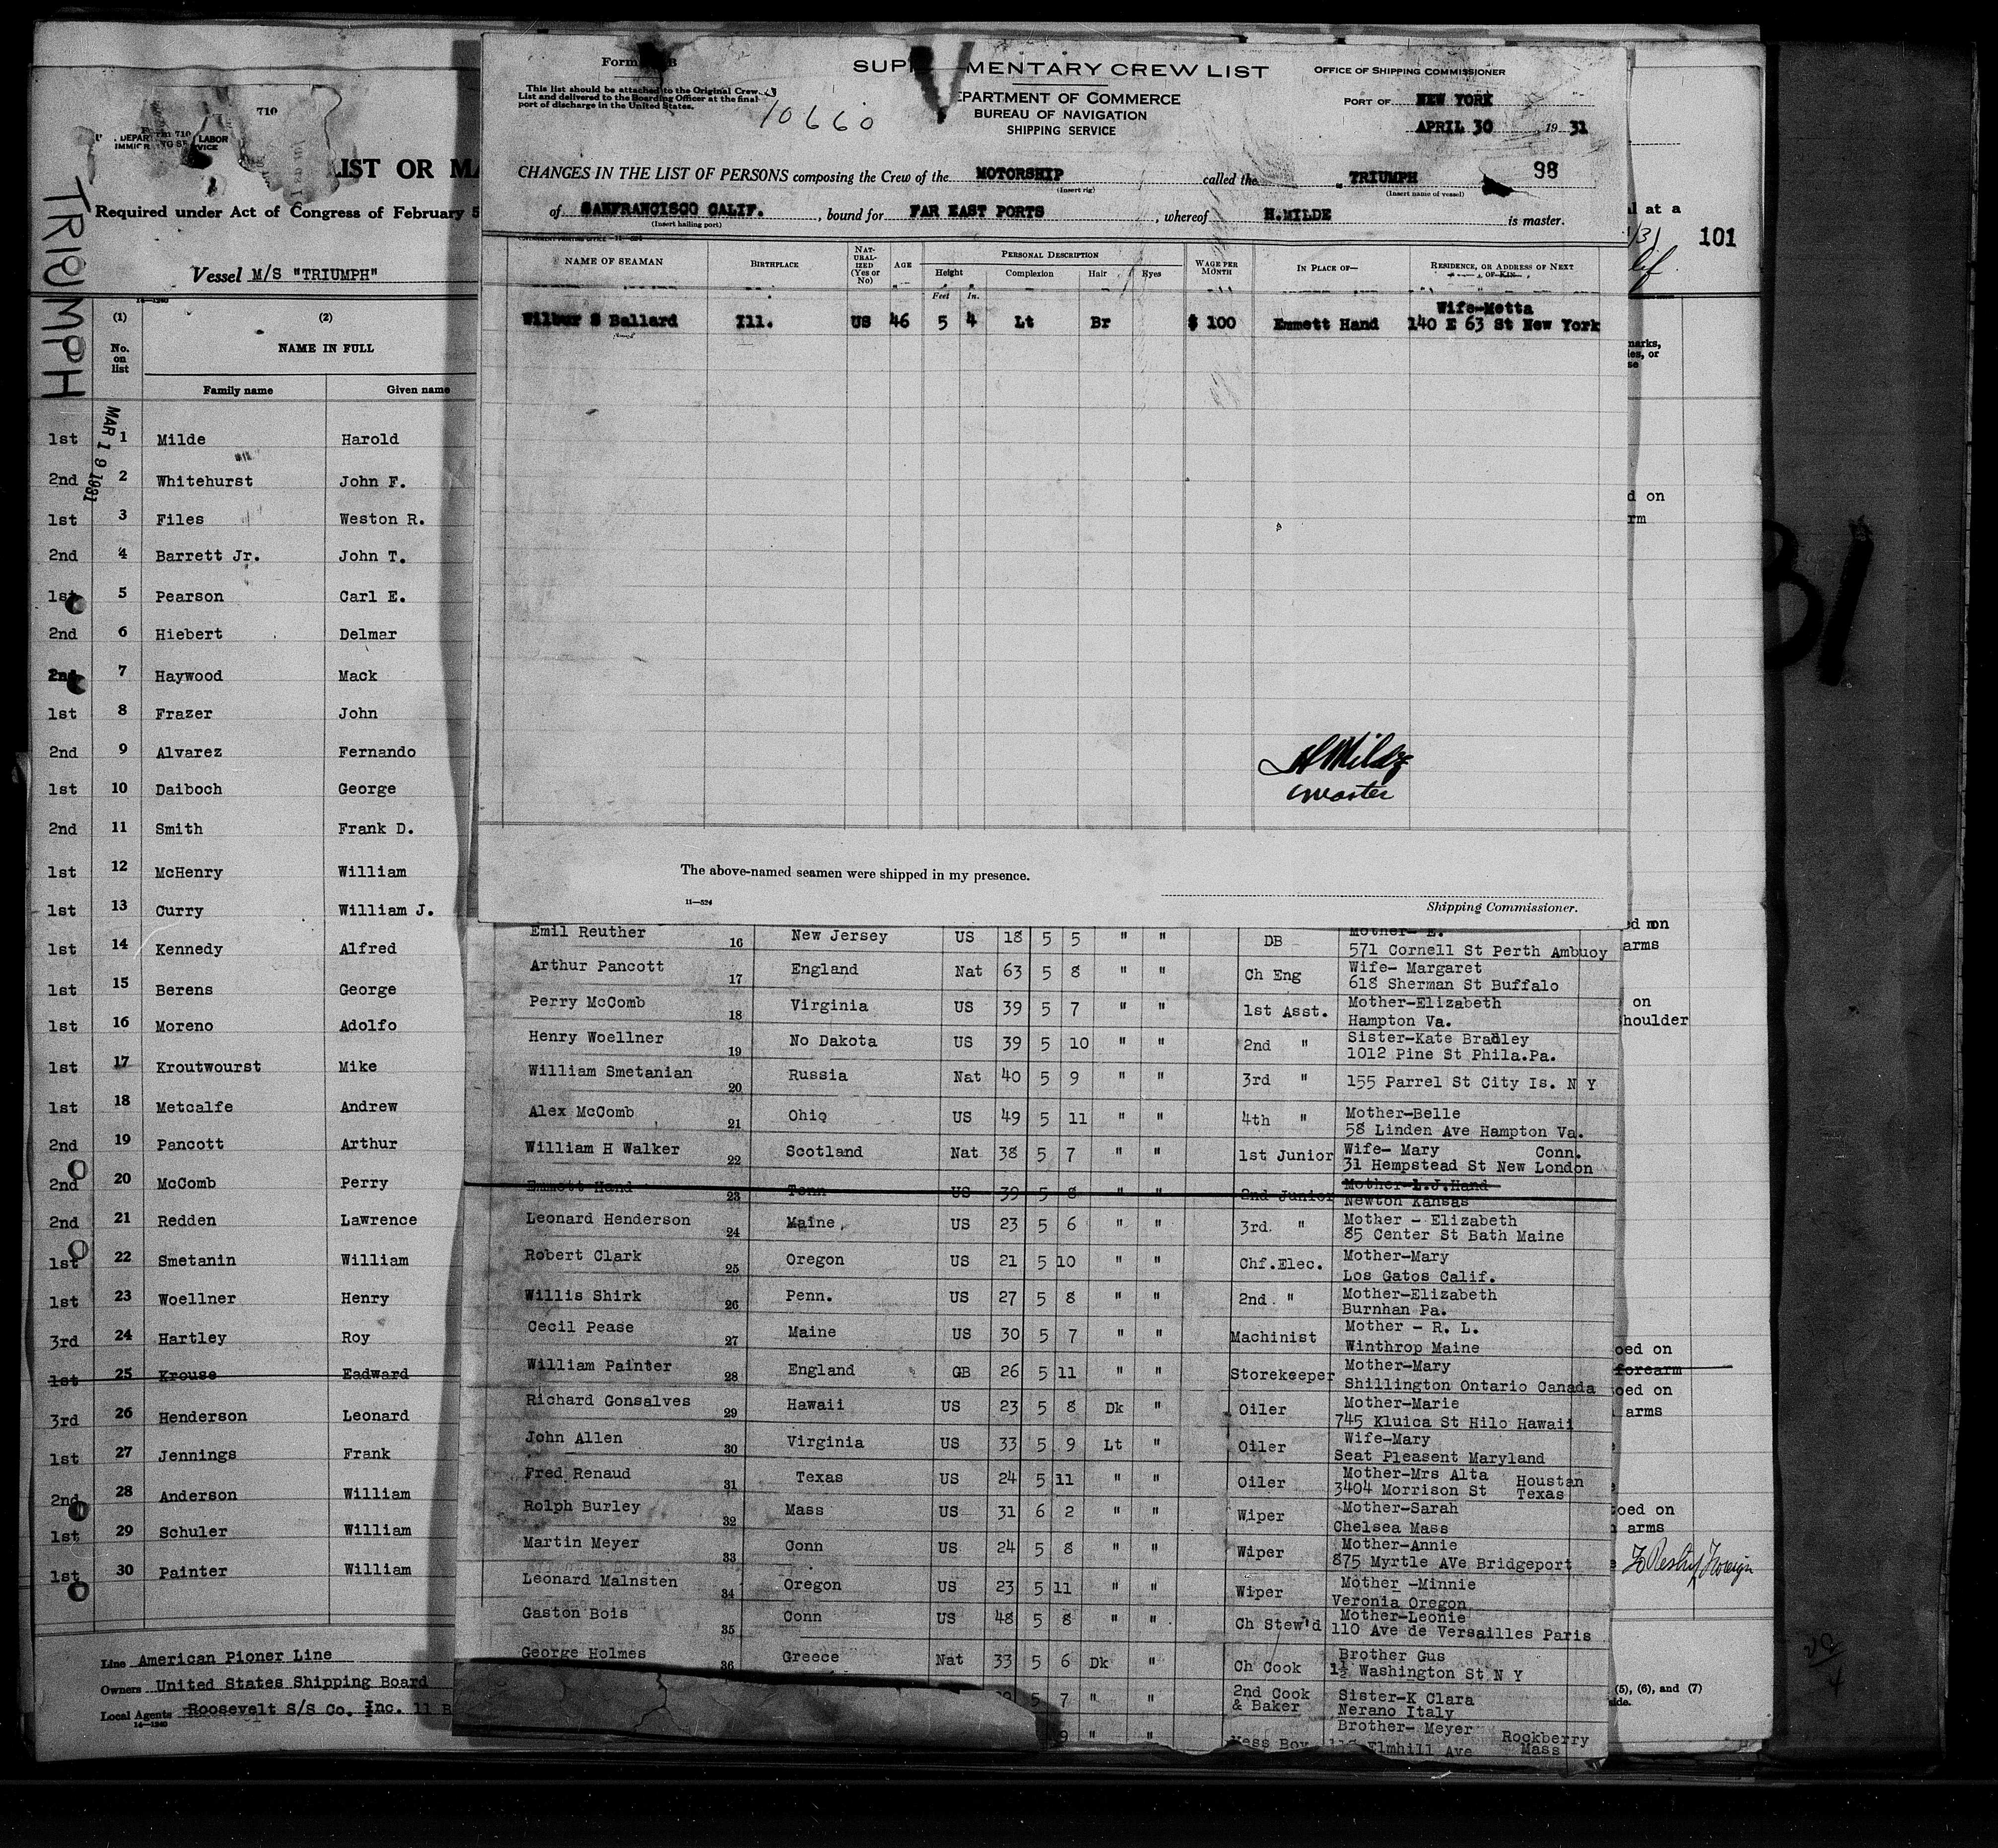 SUP MENTARY CREW LIST
OFFICE OF SHIPPING COMMISSIONER
This list should be attached to the Original Crew
List and delivered to the Boarding Officer at the final
port of discharge in the United States.
10660
EPARTMENT OF COMMERCE
BUREAU OF NAVIGATION
SHIPPING SERVICE
PORT OF NEW YORK
APRIL 30, 19 31
CHANGES IN THE LIST OF PERSONS composing the Crew of the MOTORSHIP called the TRIUMPH 98
(Insert rig) (Insert name of vessel)
of SANFRANCISCO CALIF. , bound for FAR EAST PORTS , whereof H.MILDE is master.
(Insert hailing port)
NAME OF SEAMAN BIRTHPLACE NAT-URAL-IZED (Yes or No) AGE PERSONAL DESCRIPTION WAGE PER MONTH IN PLACE OF— RESIDENCE, OR ADDRESS OF NEXT OF KIN
Height Complexion Hair Eyes
Feet In.
Wife-Metta
Wilbur S Ballard Ill. US 46 5 4 Lt Br $ 100 Emmett Hand 140 E 63 St New York
H Milde
Master
The above-named seamen were shipped in my presence.
11—524
Shipping Commissioner.
Emil Reuther 16 New Jersey US 18 5 5 " " DB Mother- E.
571 Cornell St Perth Ambuoy
Arthur Pancott 17 England Nat 63 5 8 " " Ch Eng Wife- Margaret
618 Sherman St Buffalo
Perry McComb 18 Virginia US 39 5 7 " " 1st Asst. Mother-Elizabeth
Hampton Va.
Henry Woellner 19 No Dakota US 39 5 10 " " 2nd " Sister-Kate Bradley
1012 Pine St Phila.Pa.
William Smetanian 20 Russia Nat 40 5 9 " " 3rd " 155 Parrel St City Is. N Y
Alex McComb 21 Ohio US 49 5 11 " " 4th " Mother-Belle
58 Linden Ave Hampton Va.
William H Walker 22 Scotland Nat 38 5 7 " " 1st Junior Wife- Mary Conn.
31 Hempstead St New London
Emmett Hand 23 Tenn US 39 5 8 " " 2nd Junior Mother-L.J.Hand
Newton Kansas
Leonard Henderson 24 Maine US 23 5 6 " " 3rd. " Mother - Elizabeth
85 Center St Bath Maine
Robert Clark 25 Oregon US 21 5 10 " " Chf.Elec. Mother-Mary
Los Gatos Calif.
Willis Shirk 26 Penn. US 27 5 8 " " 2nd. " Mother-Elizabeth
Burnhan Pa.
Cecil Pease 27 Maine US 30 5 7 " " Machinist Mother - R. L.
Winthrop Maine
William Painter 28 England GB 26 5 11 " " Storekeeper Mother-Mary
Shillington Ontario Canada
Richard Gonsalves 29 Hawaii US 23 5 8 Dk " Oiler Mother-Marie
745 Kluica St Hilo Hawaii
John Allen 30 Virginia US 33 5 9 Lt " Oiler Wife-Mary
Seat Pleasent Maryland
Fred Renaud 31 Texas US 24 5 11 " " Oiler Mother-Mrs Alta Houstan
3404 Morrison St Texas
Rolph Burley 32 Mass US 31 6 2 " " Wiper Mother-Sarah
Chelsea Mass
Martin Meyer 33 Conn US 24 5 8 " " Wiper Mother-Annie
875 Myrtle AVe Bridgeport
Leonard Malnsten 34 Oregon US 23 5 11 " " Wiper Mother -Minnie
Veronia Oregon
Gaston Bois 35 Conn US 48 5 8 " " Ch Stew'd Mother-Leonie
110 Ave de Versailles Paris
George Holmes 36 Greece Nat 33 5 6 Dk " Ch Cook Brother Gus
1½ Washington St N Y
5 7 " " 2nd Cook & Baker Sister-K Clara
Nerano Italy
9 " " Mess Boy Brother- Meyer Rookberry
Elmhill Ave Mass
710
Form 710
LABOR
TRIUMPH
LIST OR MA
Required under Act of Congress of February 5
Vessel M/S "TRIUMPH"
(1) (2)
No. on list NAME IN FULL
Family name Given name
MAR 19 1931
1st 1 Milde Harold
2nd 2 Whitehurst John F.
1st 3 Files Weston R.
2nd 4 Barrett Jr. John T.
1st 5 Pearson Carl E.
2nd 6 Hiebert Delmar
2nd 7 Haywood Mack
1st 8 Frazer John
2nd 9 Alvarez Fernando
1st 10 Daiboch George
2nd 11 Smith Frank D.
1st 12 McHenry William
1st 13 Curry William J.
1st 14 Kennedy Alfred
1st 15 Berens George
1st 16 Moreno Adolfo
1st 17 Kroutwourst Mike
1st 18 Metcalfe Andrew
2nd 19 Pancott Arthur
2nd 20 McComb Perry
2nd 21 Redden Lawrence
1st 22 Smetanin William
1st 23 Woellner Henry
3rd 24 Hartley Roy
1st 25 Krouse Eadward
3rd 26 Henderson Leonard
1st 27 Jennings Frank
2nd 28 Anderson William
1st 29 Schuler William
1st 30 Painter William
Line American Pioner Line
Owners United States Shipping Board
Local Agents Roosevelt S/S Co. Inc. 11 B
14—1240
l at a
101
marks,
ies, or
se
d on
rm
arms
on
houlder
oed on
forearm
oed on
arms
oed on
arms
(5), (6), and (7)
side.
31